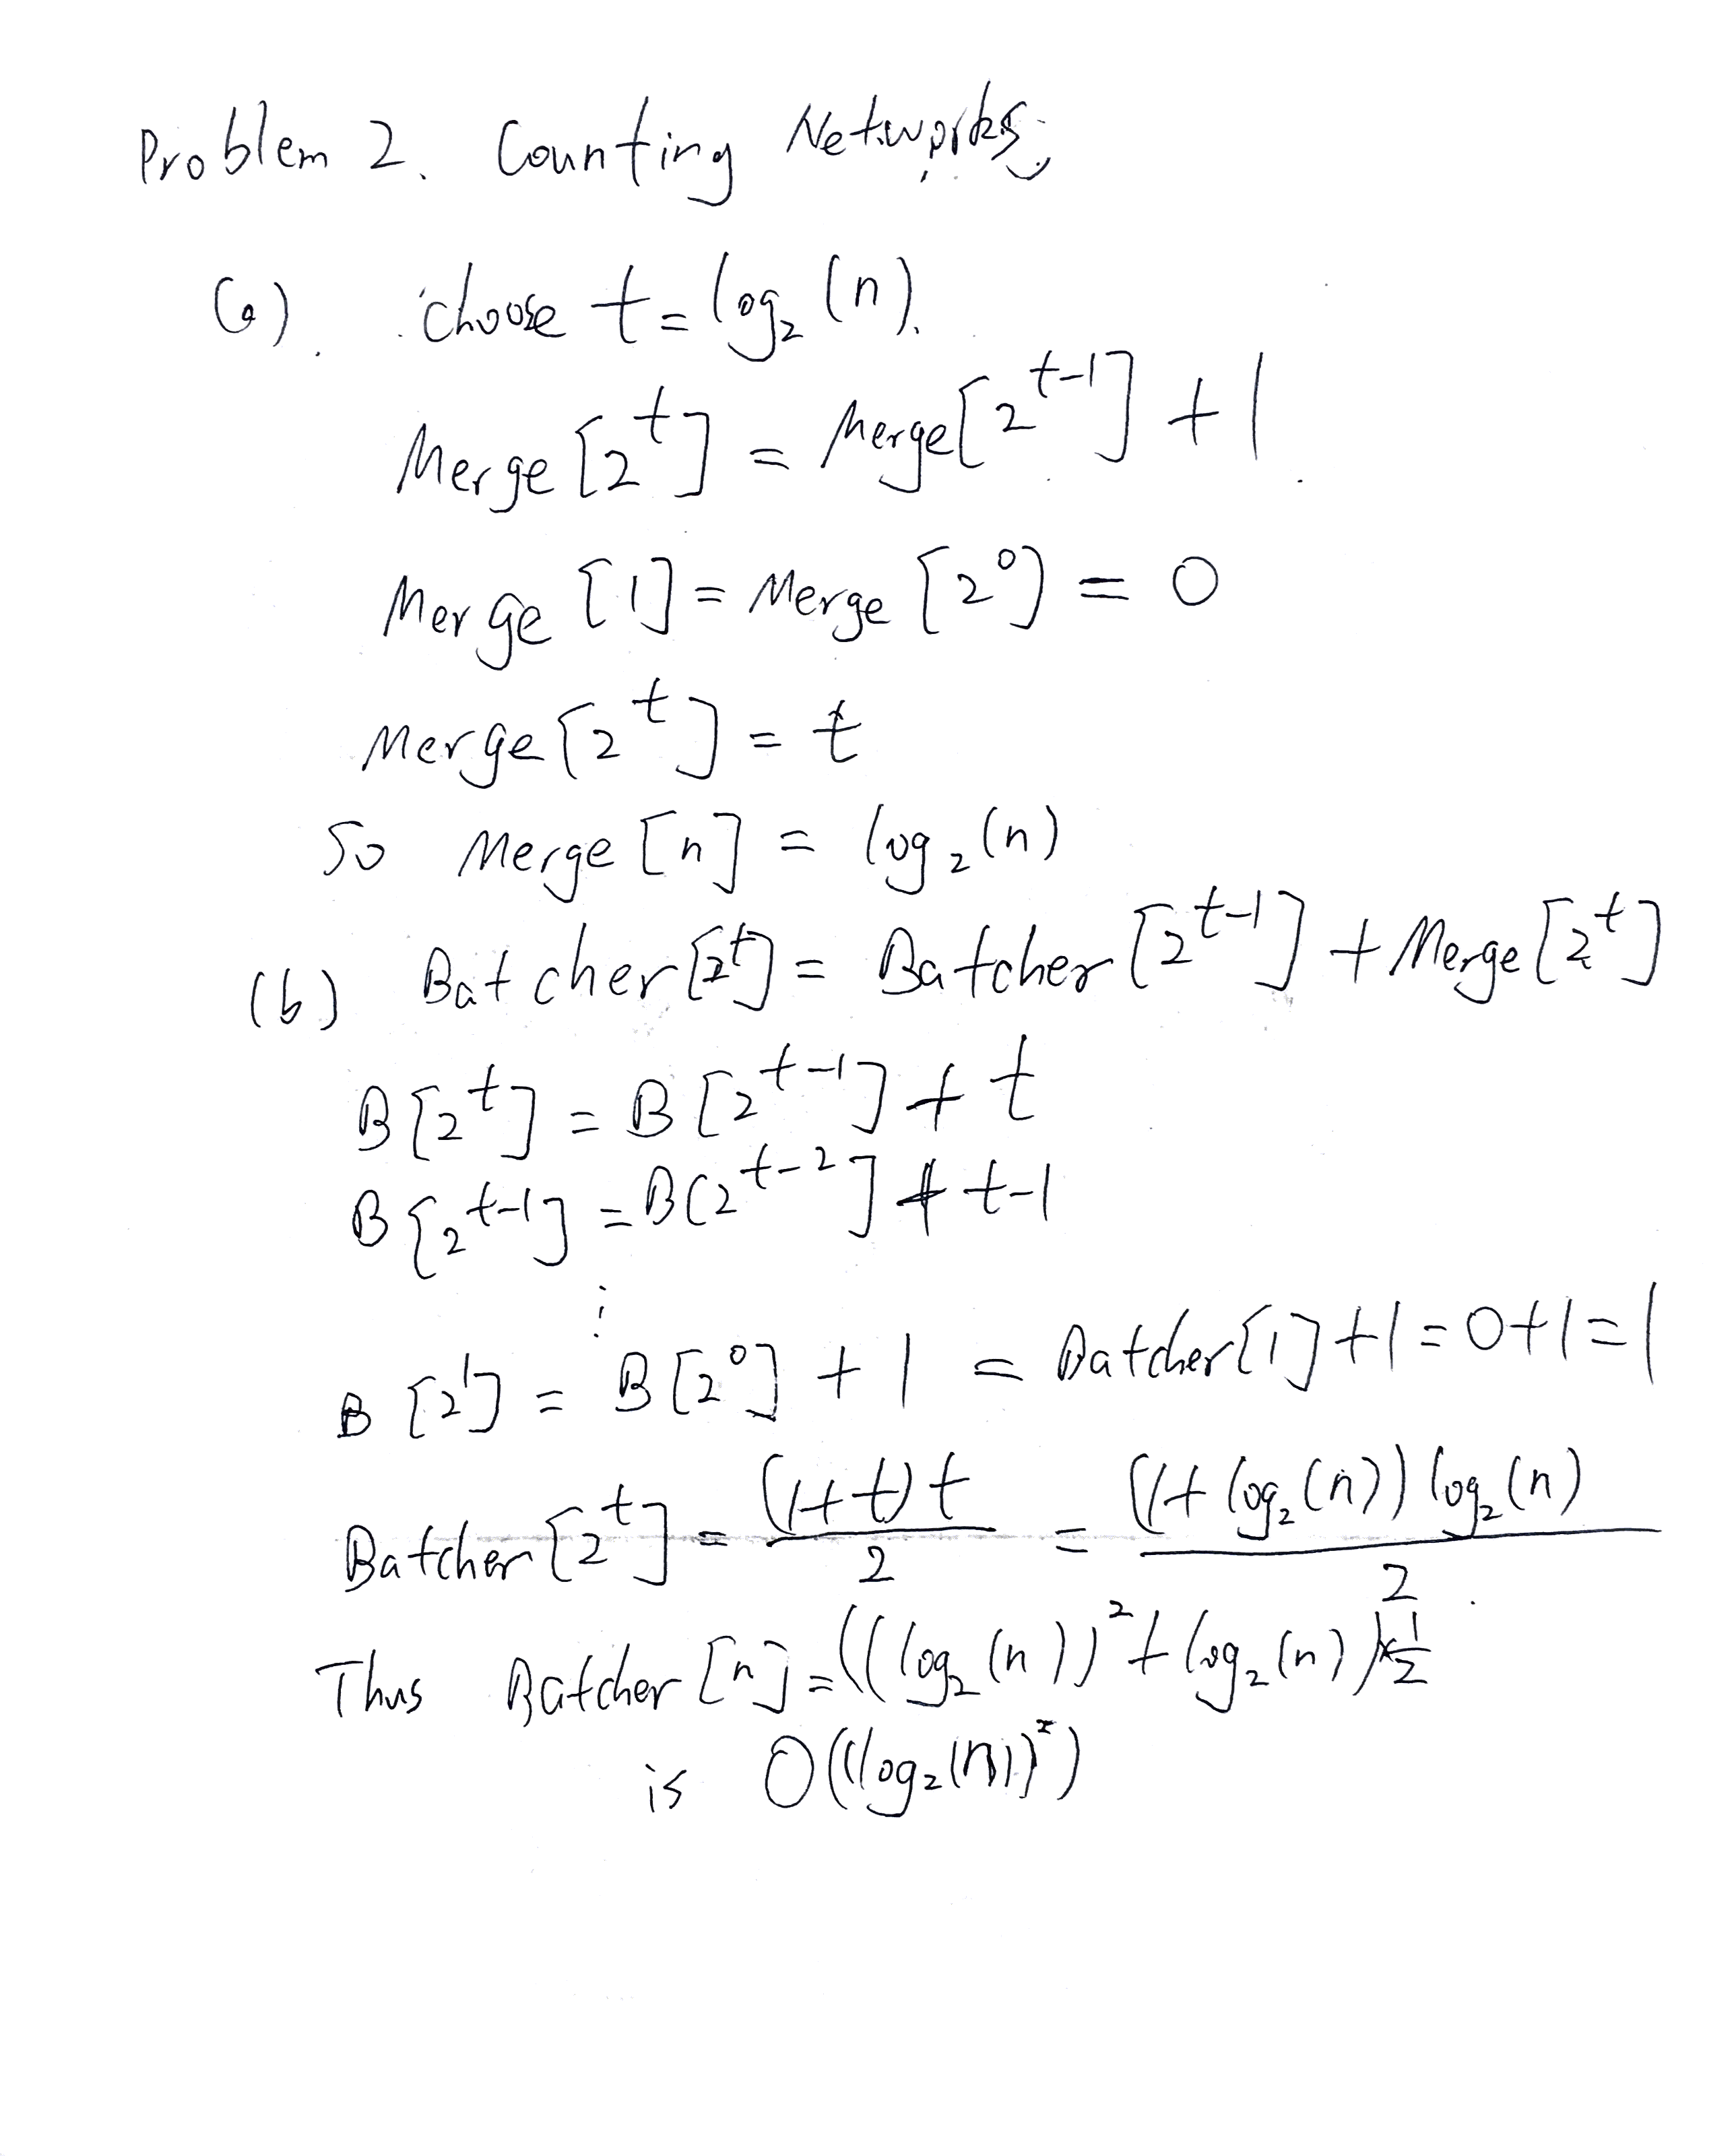 Problem 2. Counting Networks.
(a). choose t = log₂(n).
Merge[2^t] = Merge[2^(t-1)] + 1.
Merge[1] = Merge[2⁰] = 0
Merge[2^t] = t
So Merge[n] = log₂(n)
(b) Batcher[2^t] = Batcher[2^(t-1)] + Merge[2^t]
B[2^t] = B[2^(t-1)] + t
B[2^(t-1)] = B[2^(t-2)] + t-1
⋮
B[2¹] = B[2⁰] + 1 = Batcher[1] + 1 = 0+1 = 1
Batcher[2^t] = (1+t)t / 2 = (1+log₂(n))log₂(n) / 2
Thus Batcher[n] = ((log₂(n))² + log₂(n)) × 1/2
is O((log₂(n))²)